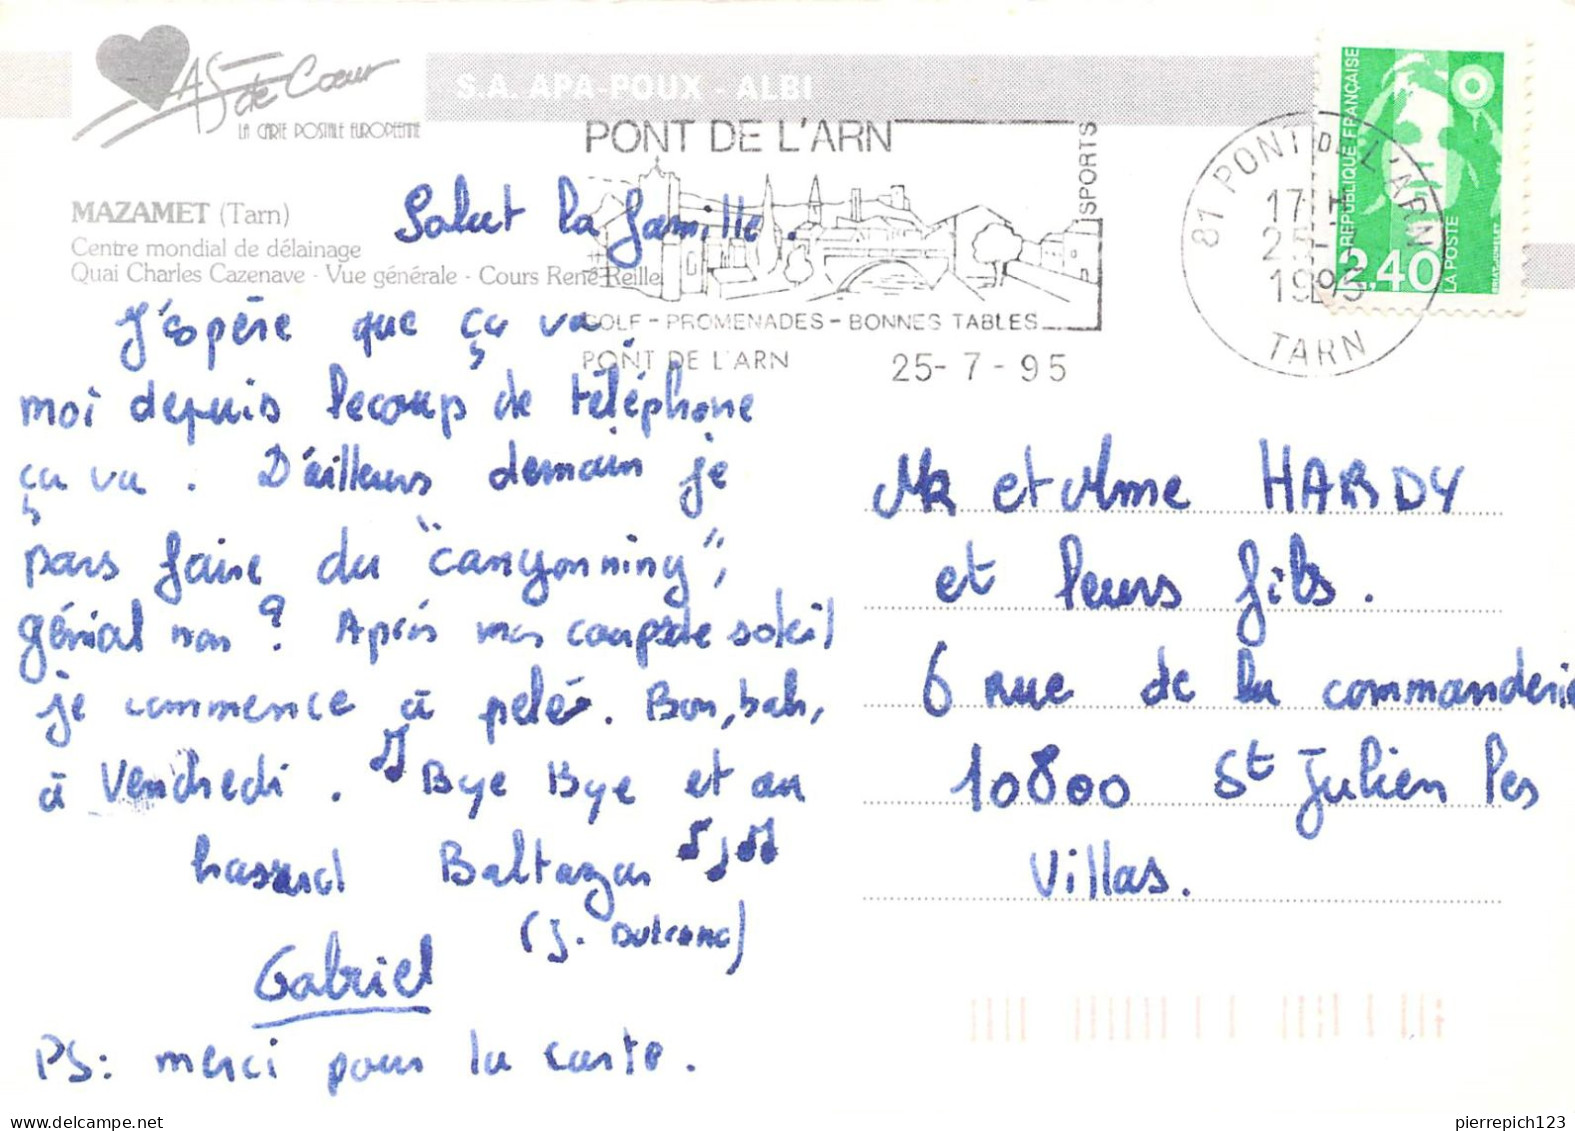 AS de Coeur
LA CARTE POSTALE EUROPEENNE
S.A. APA-POUX - ALBI
MAZAMET (Tarn)
Centre mondial de délainage
Quai Charles Cazenave - Vue générale - Cours René Reille
PONT DE L'ARN
SPORTS
GOLF - PROMENADES - BONNES TABLES
PONT DE L'ARN 25-7-95
81 PONT DE L'ARN
17 H
25-7
1995
TARN
REPUBLIQUE FRANÇAISE
2,40
LA POSTE
Salut la famille.
J'espère que ça va
moi depuis lecoup de téléphone
ça va. D'ailleurs demain je
pars faire du "canyonning",
génial non? Après mes coups de soleil
je commence à pelé. Bon, bah,
à Vendredi. Bye Bye et au
hasard Baltazar
(J. Dutronc)
Gabriel
PS: merci pour la carte.
Mr et Mme HARDY
et leurs fils.
6 rue de la commanderie
10800 St Julien les
Villas.
pierrepich123